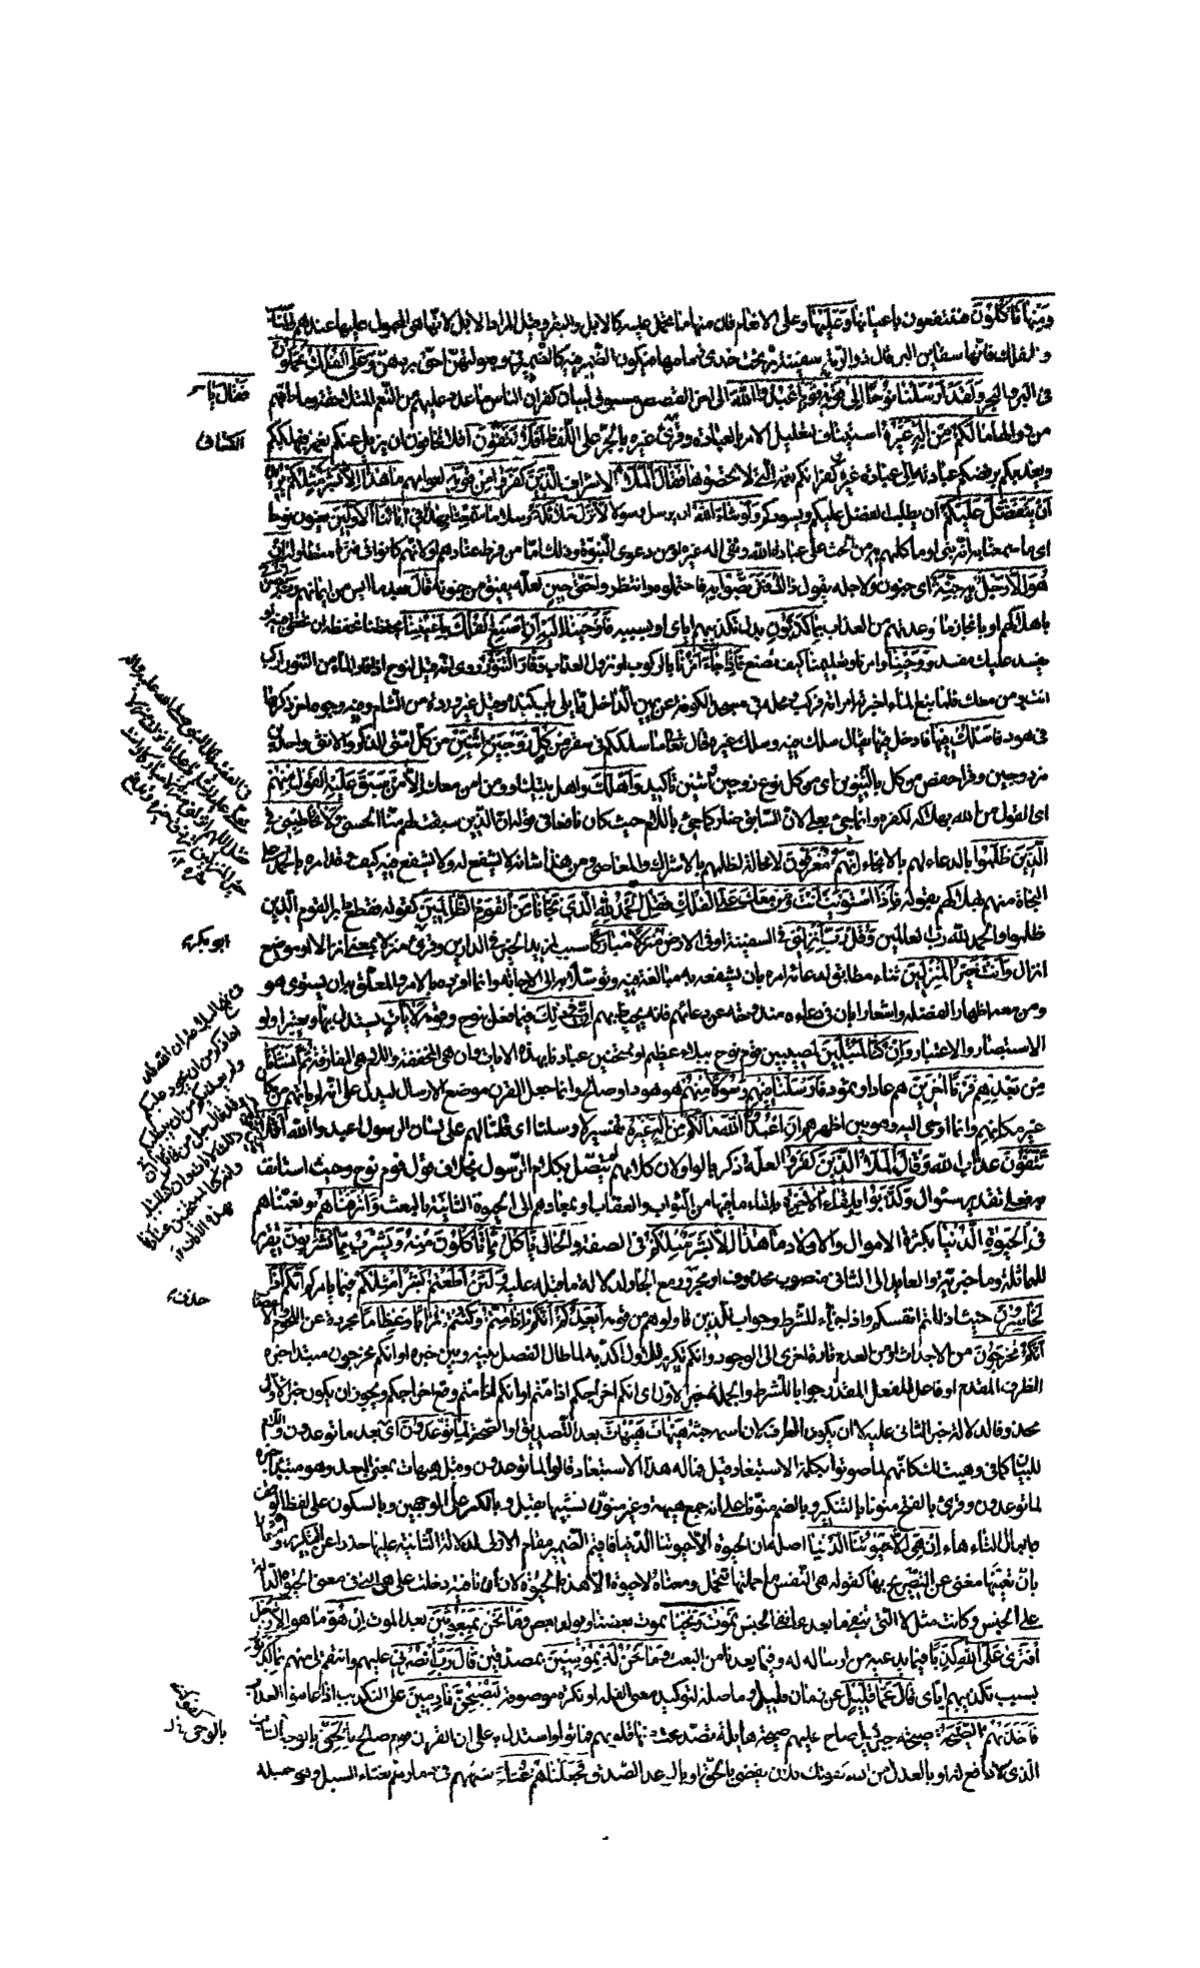 وَمِنْهَا تَأْكُلُونَ فتنتفعون باعيانها وَعَلَيْهَا وعلى الانعام فان منها ما يحمل عليه كالابل والبقر وقيل المراد الابل لانها هى المحمول عليها عندهم
والفلك فانها سفاين البر قال ذو الرمة سفينة بر تحت خدى زمامها فيكون الضمير فيه كالضمير فى وبعولتهن احق بردهن وَعَلَى الْفُلْكِ تُحْمَلُونَ
فى البر والبحر وَلَقَدْ أَرْسَلْنَا نُوحًا إِلَى قَوْمِهِ فَقَالَ يَا قَوْمِ اعْبُدُوا اللَّهَ الى اخر القصص مسوق لبيان كفران الناس ما عدد عليهم من النعم المتلاحقة وما حاقهم
من زوالها مَا لَكُمْ مِنْ إِلَهٍ غَيْرُهُ استيناف لتعليل الامر بالعبادة وقرئ غيره بالجر على اللفظ أَفَلَا تَتَّقُونَ افلا تخافون ان يزيل عنكم نعمه فيهلككم
ويعذبكم برفضكم عبادته الى عبادة غيره وكفرانكم نعمه التى لا تحصونها فَقَالَ الْمَلَأُ الاشراف الَّذِينَ كَفَرُوا مِنْ قَوْمِهِ لعوامهم مَا هَذَا إِلَّا بَشَرٌ مِثْلُكُمْ يُرِيدُ
أَنْ يَتَفَضَّلَ عَلَيْكُمْ ان يطلب الفضل عليكم ويسودكم وَلَوْ شَاءَ اللَّهُ ان يرسل رسولا لَأَنْزَلَ مَلَائِكَةً رسلا مَا سَمِعْنَا بِهَذَا فِي آبَائِنَا الْأَوَّلِينَ يعنون نوحا
اى ما سمعنا به انه نبى او ما كلمهم به من الحث على عبادة الله ونفى اله غيره او من دعوى النبوة وذلك اما من فرط عنادهم او لانهم كانوا فى فترة متطاولة إِنْ
هُوَ إِلَّا رَجُلٌ بِهِ جِنَّةٌ اى جنون ولاجله يقول ذلك فَتَرَبَّصُوا بِهِ فاحتملوه وانتظروا حَتَّى حِينٍ لعله يفيق من جنونه قَالَ بعد ما ايس من ايمانهم رَبِّ انْصُرْنِي
باهلاكهم او بانجاز ما وعدتهم من العذاب بِمَا كَذَّبُونِ بدل تكذيبهم اياى او بسببه فَأَوْحَيْنَا إِلَيْهِ أَنِ اصْنَعِ الْفُلْكَ بِأَعْيُنِنَا بحفظنا نحفظه ان تخطئ فيه او
يفسد عليك مفسد وَوَحْيِنَا وامرنا وتعليمنا كيف تصنع فَإِذَا جَاءَ أَمْرُنَا بالركوب او نزول العذاب وَفَارَ التَّنُّورُ روى انه قيل لنوح اذا فار الماء من التنور اركب
انت ومن معك فلما نبع الماء اخبرته امراته فركب ومحله فى مسجد الكوفة عن يمين الداخل مما يلى باب كندة وقيل عين وردة من الشام وفيه وجوه اخر ذكرتها
فى هود فَاسْلُكْ فِيهَا فادخل فيها يقال سلك فيه وسلك غيره قال تعالى ما سلككم فى سقر مِنْ كُلٍّ زَوْجَيْنِ اثْنَيْنِ من كل امتى الذكر والانثى واحدين
مزدوجين وقرا حفص من كل بالتنوين اى من كل نوع زوجين واثنين تأكيد وَأَهْلَكَ واهل بيتك او ومن امن معك إِلَّا مَنْ سَبَقَ عَلَيْهِ الْقَوْلُ مِنْهُمْ
اى القول من الله بهلاكه لكفره وانما جئ بعلى لان السابق ضار كما جئ باللام حيث كان نافعا فى قوله ان الذين سبقت لهم منا الحسنى وَلَا تُخَاطِبْنِي فِي
الَّذِينَ ظَلَمُوا بالدعاء لهم بالانجاء إِنَّهُمْ مُغْرَقُونَ لا محالة لظلمهم بالاشراك والمعاصى ومن هذا شانه لا يشفع له ولا يشفع فيه كيف وقد امره بالحمد على
النجاة منهم بهلاكهم بقوله فَإِذَا اسْتَوَيْتَ أَنْتَ وَمَنْ مَعَكَ عَلَى الْفُلْكِ فَقُلِ الْحَمْدُ لِلَّهِ الَّذِي نَجَّانَا مِنَ الْقَوْمِ الظَّالِمِينَ كقوله فقطع دابر القوم الذين
ظلموا والحمد لله رب العالمين وَقُلْ رَبِّ أَنْزِلْنِي فى السفينة او فى الارض مُنْزَلًا مُبَارَكًا يتسبب لمزيد الخير فى الدارين وقرئ منزلا بمعنى انزالا او موضع
انزال وَأَنْتَ خَيْرُ الْمُنْزِلِينَ ثناء مطابق لدعائه امره بان يشفعه به مبالغة فيه وتوسلا به الى الاجابة وانما افرده بالامر والمعلق به ان يستوى هو
ومن معه اظهارا لفضله واشعارا بان فى دعائه مندوحة عن دعائهم فانه يحيط بهم إِنَّ فِي ذَلِكَ فيما فعل بنوح وقومه لَآيَاتٍ يستدل بها ويعتبر اولو
الاستبصار والاعتبار وَإِنْ كُنَّا لَمُبْتَلِينَ لمصيبين قوم نوح ببلاء عظيم او ممتحنين عبادنا بهذه الايات وان هى المخففة واللام هى الفارقة ثُمَّ أَنْشَأْنَا
مِنْ بَعْدِهِمْ قَرْنًا آخَرِينَ هم عاد او ثمود فَأَرْسَلْنَا فِيهِمْ رَسُولًا مِنْهُمْ هو هود او صالح وانما جعل القرن موضع الارسال ليدل على انه لم يأتهم من مكان
غير مكانهم وانما اوحى اليه وهو بين اظهرهم أَنِ اعْبُدُوا اللَّهَ مَا لَكُمْ مِنْ إِلَهٍ غَيْرُهُ تفسير لارسلنا اى قلنا لهم على لسان الرسول اعبدوا الله أَفَلَا
تَتَّقُونَ عذاب الله وَقَالَ الْمَلَأُ مِنْ قَوْمِهِ الَّذِينَ كَفَرُوا لعله ذكر بالواو لان كلامهم لم يتصل بكلام الرسول بخلاف قول قوم نوح وحيث استانف
به فعلى تقدير سئوال وَكَذَّبُوا بِلِقَاءِ الْآخِرَةِ بلقاء ما فيها من الثواب والعقاب او بمعادهم الى الحيوة الثانية بالبعث وَأَتْرَفْنَاهُمْ ونعمناهم
فِي الْحَيَوةِ الدُّنْيَا بكثرة الاموال والاولاد مَا هَذَا إِلَّا بَشَرٌ مِثْلُكُمْ فى الصفة والحال يَأْكُلُ مِمَّا تَأْكُلُونَ مِنْهُ وَيَشْرَبُ مِمَّا تَشْرَبُونَ تقرير
للمماثلة وما خبرية والعايد الى الثانى منصوب محذوف او مجرور مع الجار لدلالة ما قبله عليه وَلَئِنْ أَطَعْتُمْ بَشَرًا مِثْلَكُمْ فيما يامركم إِنَّكُمْ إِذًا
لَخَاسِرُونَ حيث اذللتم انفسكم واذا جزاء للشرط وجواب للذين قاولوهم من قومه أَيَعِدُكُمْ أَنَّكُمْ إِذَا مِتُّمْ وَكُنْتُمْ تُرَابًا وَعِظَامًا مجردة عن اللحوم والاعصاب
أَنَّكُمْ مُخْرَجُونَ من الاجداث او من العدم تارة اخرى الى الوجود وانكم تكرير للاول اكد به لما طال الفصل بينه وبين خبره او انكم مخرجون مبتدا خبره
الظرف المقدم او فاعل للفعل المقدر جوابا للشرط والجملة خبر الاول اى انكم اخراجكم اذا متم او انكم اذا متم وقع اخراجكم ويجوز ان يكون خبر الاول
محذوفا لدلالة خبر الثانى عليه لا ان يكون الظرف لان اسمه جثة هَيْهَاتَ هَيْهَاتَ بعد التصديق او الصحة لِمَا تُوعَدُونَ اى بعد ما توعدون واللام
للبيان كما فى هيت لك كانهم لما صوتوا بكلمة الاستبعاد قيل فما له هذا الاستبعاد قالوا لما توعدون وقيل هيهات بمعنى البعد وهو مبتدا خبره
لما توعدون وقرئ بالفتح منونا بالتنكير وبالضم منونا على انه جمع هيهة وغير منون تشبيها بقبل وبالكسر على الوجهين وبالسكون على لفظ الوقف
وبابدال التاء هاء إِنْ هِيَ إِلَّا حَيَوتُنَا الدُّنْيَا اصله ان الحيوة الا حيوتنا الدنيا فاقيم الضمير مقام الاولى لدلالة الثانية عليها حذرا عن التكرير واشعارا
بان تعينها مغنى عن التصريح بها كقوله هى النفس ما حملتها تتحمل ومعناه لا حيوة الا هذه الحيوة لان ان نافية دخلت على هى التى فى معنى الحيوة الدالة
على الجنس وكانت مثل لا التى تنفى ما بعدها نفى الجنس نَمُوتُ وَنَحْيَا يموت بعضنا ويولد بعض وَمَا نَحْنُ بِمَبْعُوثِينَ بعد الموت إِنْ هُوَ ما هو إِلَّا رَجُلٌ
افْتَرَى عَلَى اللَّهِ كَذِبًا فيما يدعيه من ارساله له وفيما يعدنا من البعث وَمَا نَحْنُ لَهُ بِمُؤْمِنِينَ بمصدقين قَالَ رَبِّ انْصُرْنِي عليهم وانتقم لى منهم بِمَا كَذَّبُونِ
بسبب تكذيبهم اياى قَالَ عَمَّا قَلِيلٍ عن زمان قليل وما صلة لتوكيد معنى القلة او نكرة موصوفة لَيُصْبِحُنَّ نَادِمِينَ على التكذيب اذا عاينوا العذاب
فَأَخَذَتْهُمُ الصَّيْحَةُ صيحة جبرئيل صاح عليهم صيحة هايلة تصدعت منها قلوبهم فماتوا واستدل به على ان القرن قوم صالح بِالْحَقِّ بالوجه الثابت
الذى لا دافع له او بالعدل من الله كقولك فلان يقضى بالحق او بالوعد الصدق فَجَعَلْنَاهُمْ غُثَاءً شبههم فى دمارهم بغثاء السيل وهو حميله
فقال يا
الكسائى
ابو بكر
حذف
بالوحى